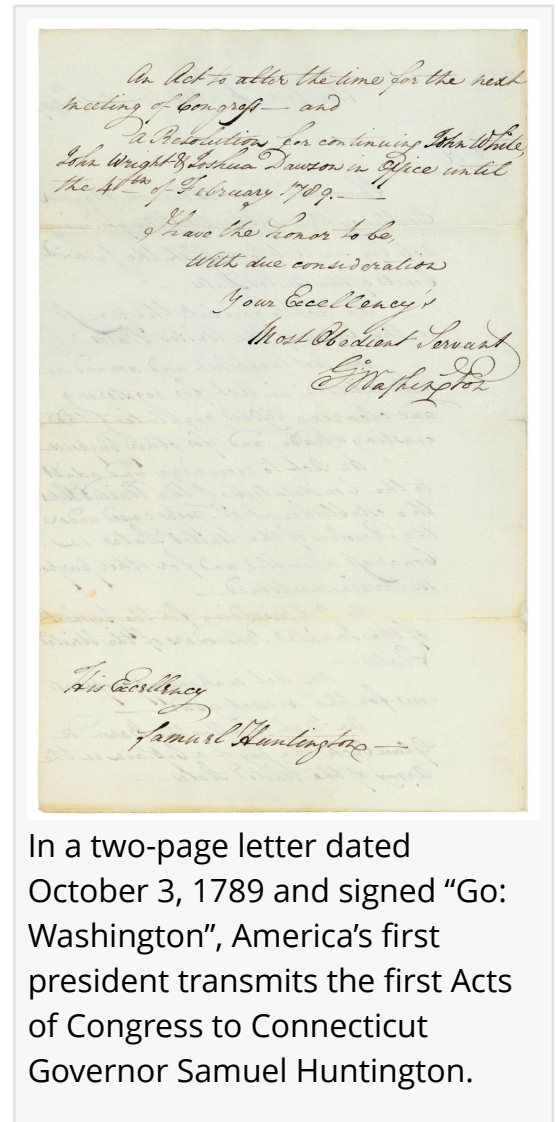 An Act to alter the time for the next
meeting of Congress— and
a Resolution for continuing John White,
John Wright & Joshua Dawson in Office until
the 4th of February 1789.—
I have the honor to be,
With due consideration
Your Excellency's
Most Obedient Servant
Go: Washington
His Excellency
Samuel Huntington—
In a two-page letter dated
October 3, 1789 and signed “Go:
Washington”, America’s first
president transmits the first Acts
of Congress to Connecticut
Governor Samuel Huntington.